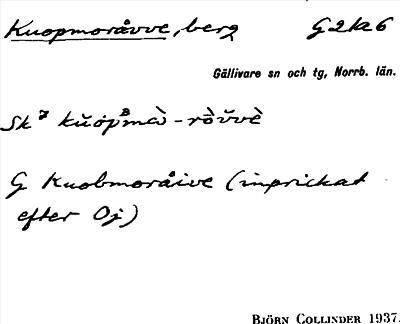 Kuopmoråvve, berg G2ka6
Gällivare sn och tg, Norrb. län.
Sk⁷
G Kuobmoråive (inprickat
efter Oj)
BJÖRN COLLINDER 1937.